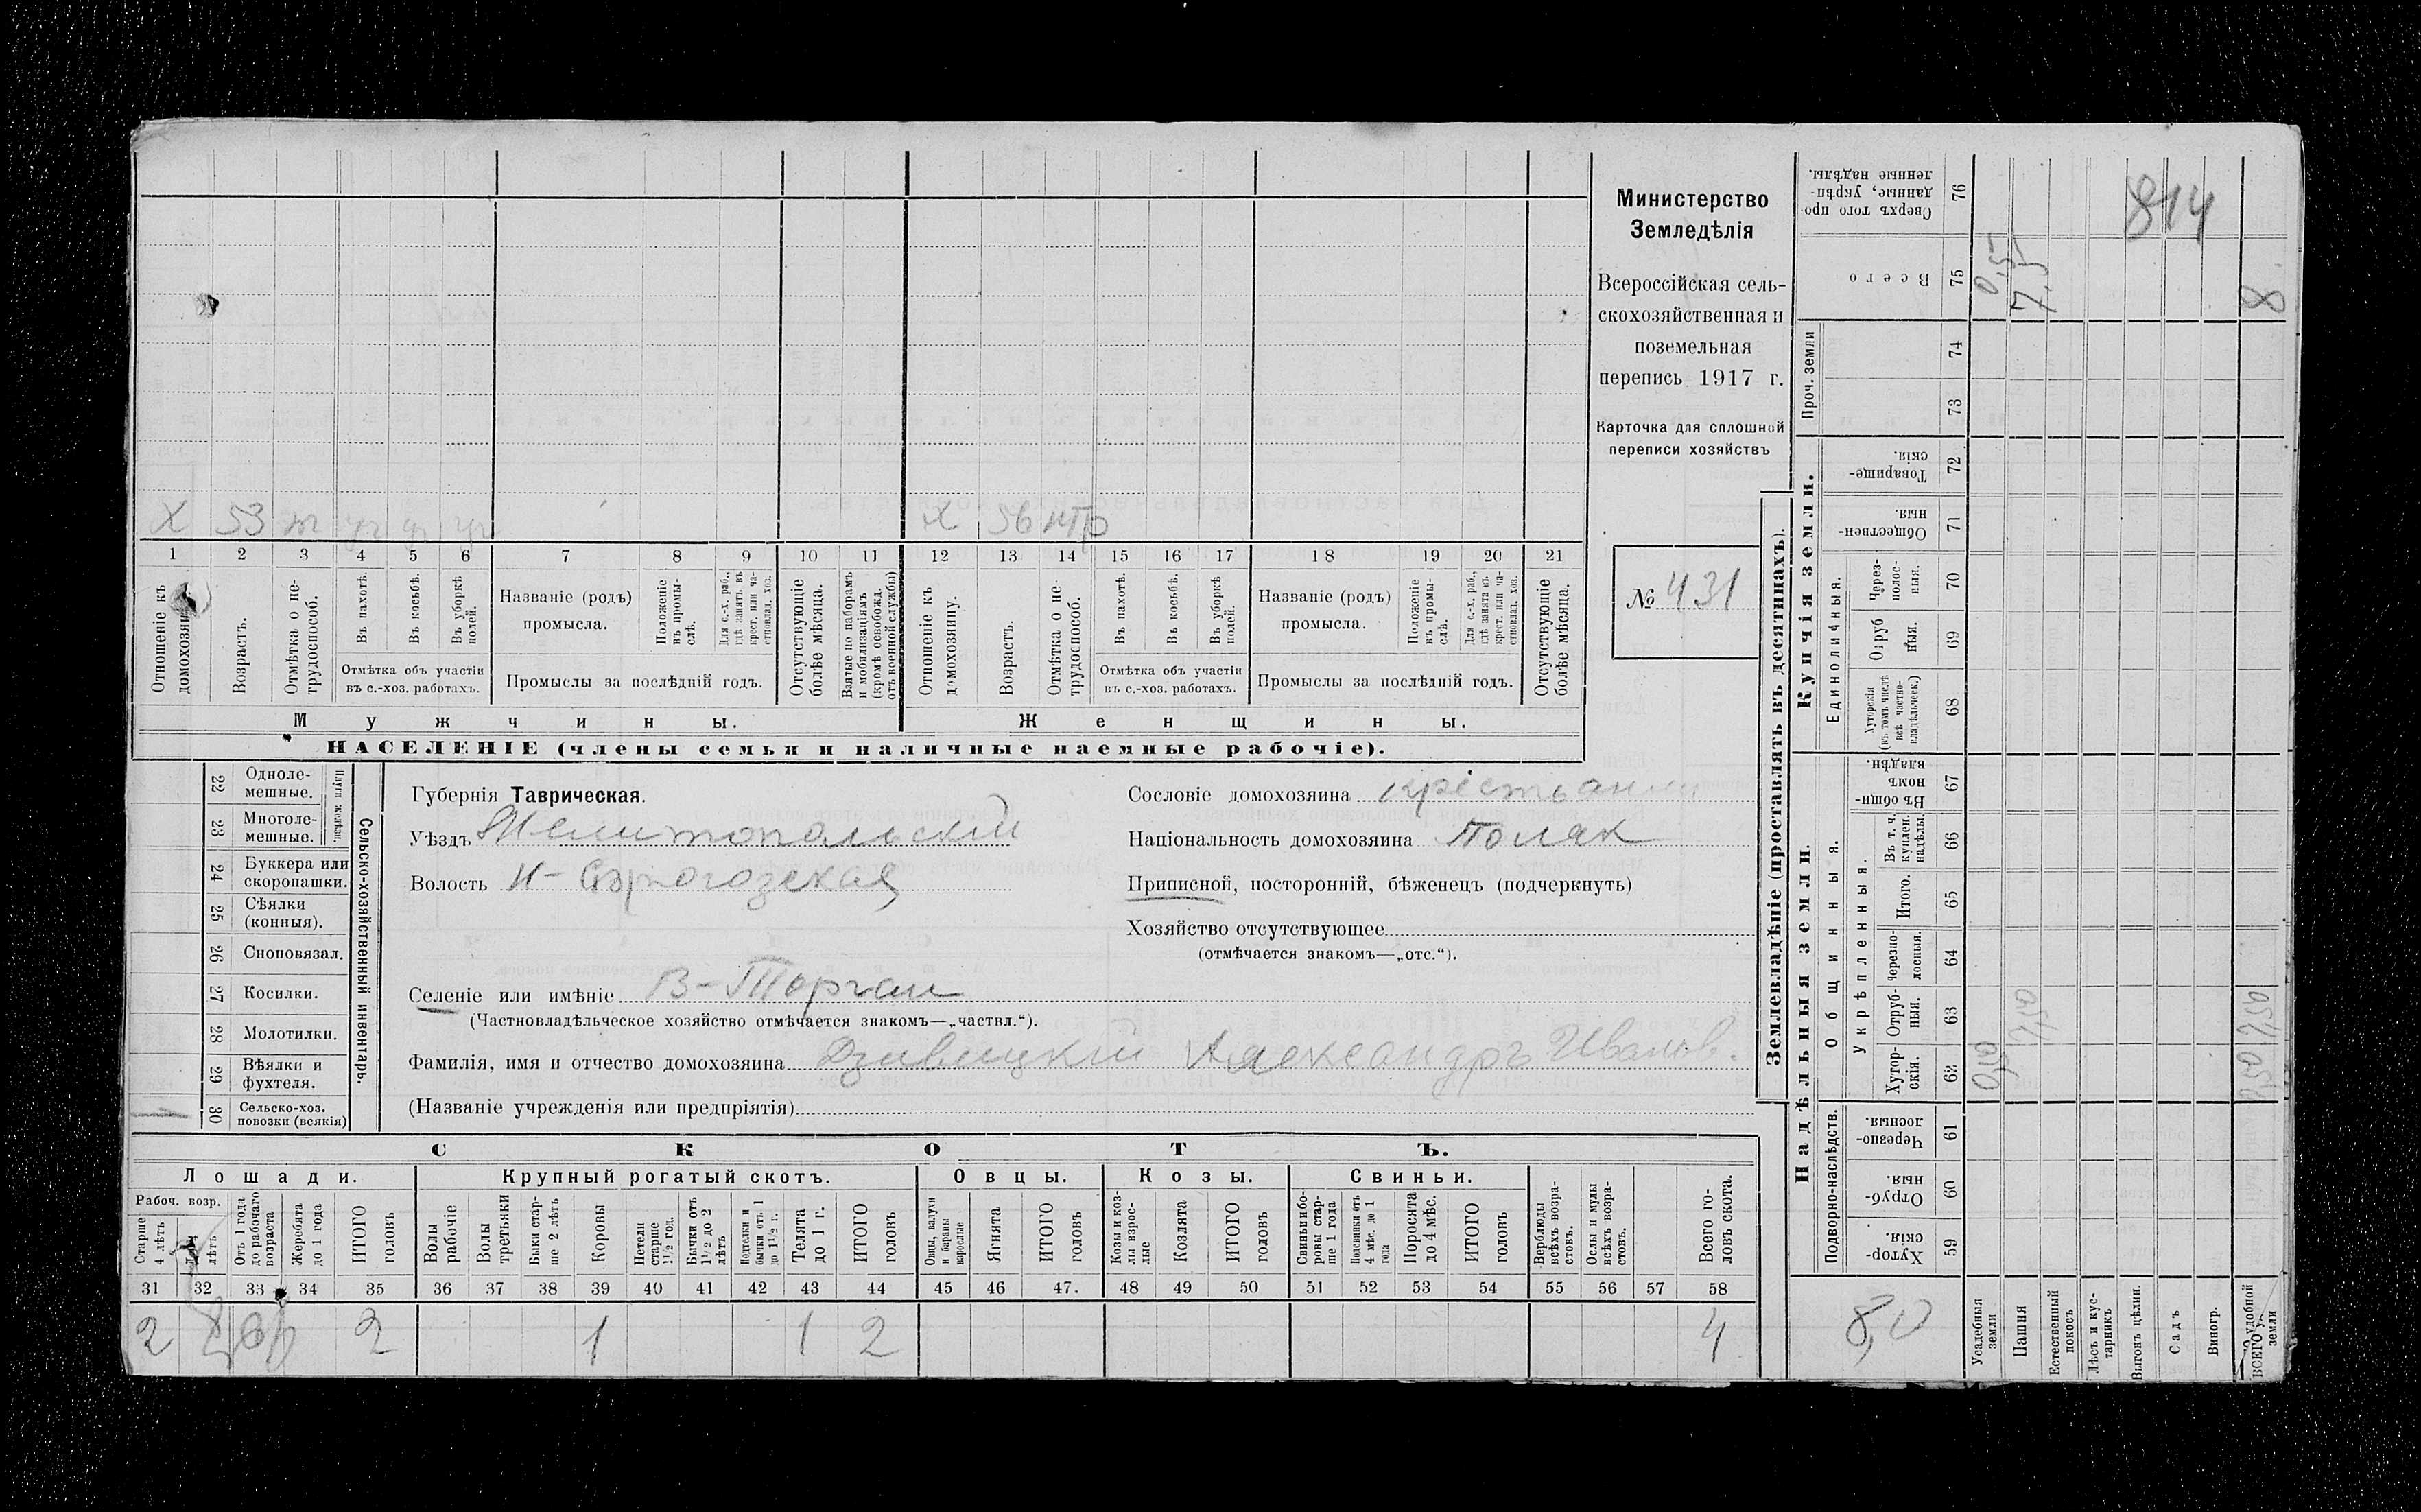 Министерство
Земледѣлія
Всероссійская сель-
скохозяйственная и
поземельная
перепись 1917 г.
Карточка для сплошной
переписи хозяйствъ
№ 431
Х 53 Х 56
1 2 3 4 5 6 7 8 9 10 11 12 13 14 15 16 17 18 19 20 21
Отношеніе къ домохозяину.
Возрастъ.
Отмѣтка о не-
трудоспособ.
Въ пахотѣ.
Въ косьбѣ.
Въ уборкѣ
полей.
Отмѣтка объ участіи
въ с.-хоз. работахъ.
Названіе (родъ)
промысла.
Положеніе
въ промы-
слѣ.
Для с.-х. раб.,
гдѣ занятъ въ
крест. или ча-
стновлад. хоз.
Промыслы за послѣдній годъ.
Отсутствующіе
болѣе мѣсяца.
Взятые по наборамъ
и мобилизаціямъ
(кромѣ освобожд.
отъ военной службы)
Отношеніе къ
домохозяину.
Возрастъ.
Отмѣтка о не-
трудоспособ.
Въ пахотѣ.
Въ косьбѣ.
Въ уборкѣ
полей.
Отмѣтка объ участіи
въ с.-хоз. работахъ.
Названіе (родъ)
промысла.
Положеніе
въ промы-
слѣ.
Для с.-х. раб.,
гдѣ занята въ
крест. или ча-
стновлад. хоз.
Промыслы за послѣдній годъ.
Отсутствующіе
болѣе мѣсяца.
Мужчины.
Женщины.
НАСЕЛЕНІЕ (члены семьи и наличные наемные рабочіе).
Сельско-хозяйственный инвентарь.
22 Одноле-
мешные.
23 Многоле-
мешные.
24 Буккера или
скоропашки.
25 Сѣялки
(конныя).
26 Сноповязал.
27 Косилки.
28 Молотилки.
29 Вѣялки и
фухтеля.
30 Сельско-хоз.
повозки (всякія)
1
Губернія Таврическая.
Уѣздъ Мелитопольскій
Волость Н-Сѣрогозская
Селеніе или имѣніе В-Торгаи
(Частновладѣльческое хозяйство отмѣчается знакомъ—„частвл.“).
Фамилія, имя и отчество домохозяина Александръ Иванов.
(Названіе учрежденія или предпріятія)
Сословіе домохозяина крестьянин
Національность домохозяина Поляк
Приписной, посторонній, бѣженецъ (подчеркнуть)
Хозяйство отсутствующее
(отмѣчается знакомъ—„отс.“).
СКОТЪ.
Лошади. Крупный рогатый скотъ. Овцы. Козы. Свиньи.
Рабоч. возр.
Старше
4 лѣтъ
лѣтъ
Отъ 1 года
до рабочаго
возраста
Жеребята
до 1 года
ИТОГО
головъ
Волы
рабочіе
Волы
третьяки
Быки стар-
ше 2 лѣтъ
Коровы
Нетели
старше
1½ год.
Бычки отъ
1½ до 2
лѣтъ
Подтелки и
бычки отъ 1
до 1½ г.
Телята
до 1 г.
ИТОГО
головъ
Овцы, валухи
и бараны
взрослые
Ягнята
ИТОГО
головъ
Козы и коз-
лы взрос-
лые
Козлята
ИТОГО
головъ
Свиньи и бо-
ровы стар-
ше 1 года
Подсвинки отъ
4 мѣс. до 1
года
Поросята
до 4 мѣс.
ИТОГО
головъ
Верблюды
всѣхъ возра-
стовъ.
Ослы и мулы
всѣхъ возра-
стовъ.
Всего го-
ловъ скота.
31 32 33 34 35 36 37 38 39 40 41 42 43 44 45 46 47. 48 49 50 51 52 53 54 55 56 57 58
2 2 1 1 2 4
Землевладѣніе (проставлять въ десятинахъ).
Надѣльныя земли.
Купчія земли.
Проч. земли
Подворно-наслѣдств.
Общинныя.
Укрѣпленныя.
Единоличныя.
76 Сверхъ того про-
данные, укрѣп-
ленные надѣлы.
75 Всего
74
73
72 Товарище-
скія.
71 Обществен-
ныя.
70 Через-
полос-
ныя.
69 Отруб
ныя.
68 Хуторскія
(въ томъ числѣ
всѣ частно-
владѣльческ.)
67 Въ общи-
номъ
владѣн.
66 Въ т. ч.
куплен.
надѣлы.
65 Итого.
64 Черезпо-
лосныя.
63 Отруб-
ныя.
62 Хутор-
скія.
61 Черезпо-
лосныя.
60 Отруб-
ныя.
59 Хутор-
скія.
814
0,5
7,5
8
8,0
Усадебныя
земли
Пашня
Естественный
покосъ
Лѣсъ и кус-
тарникъ
Выгонъ цѣлин.
Садъ
Виногр.
ВСЕГО удобной
земли